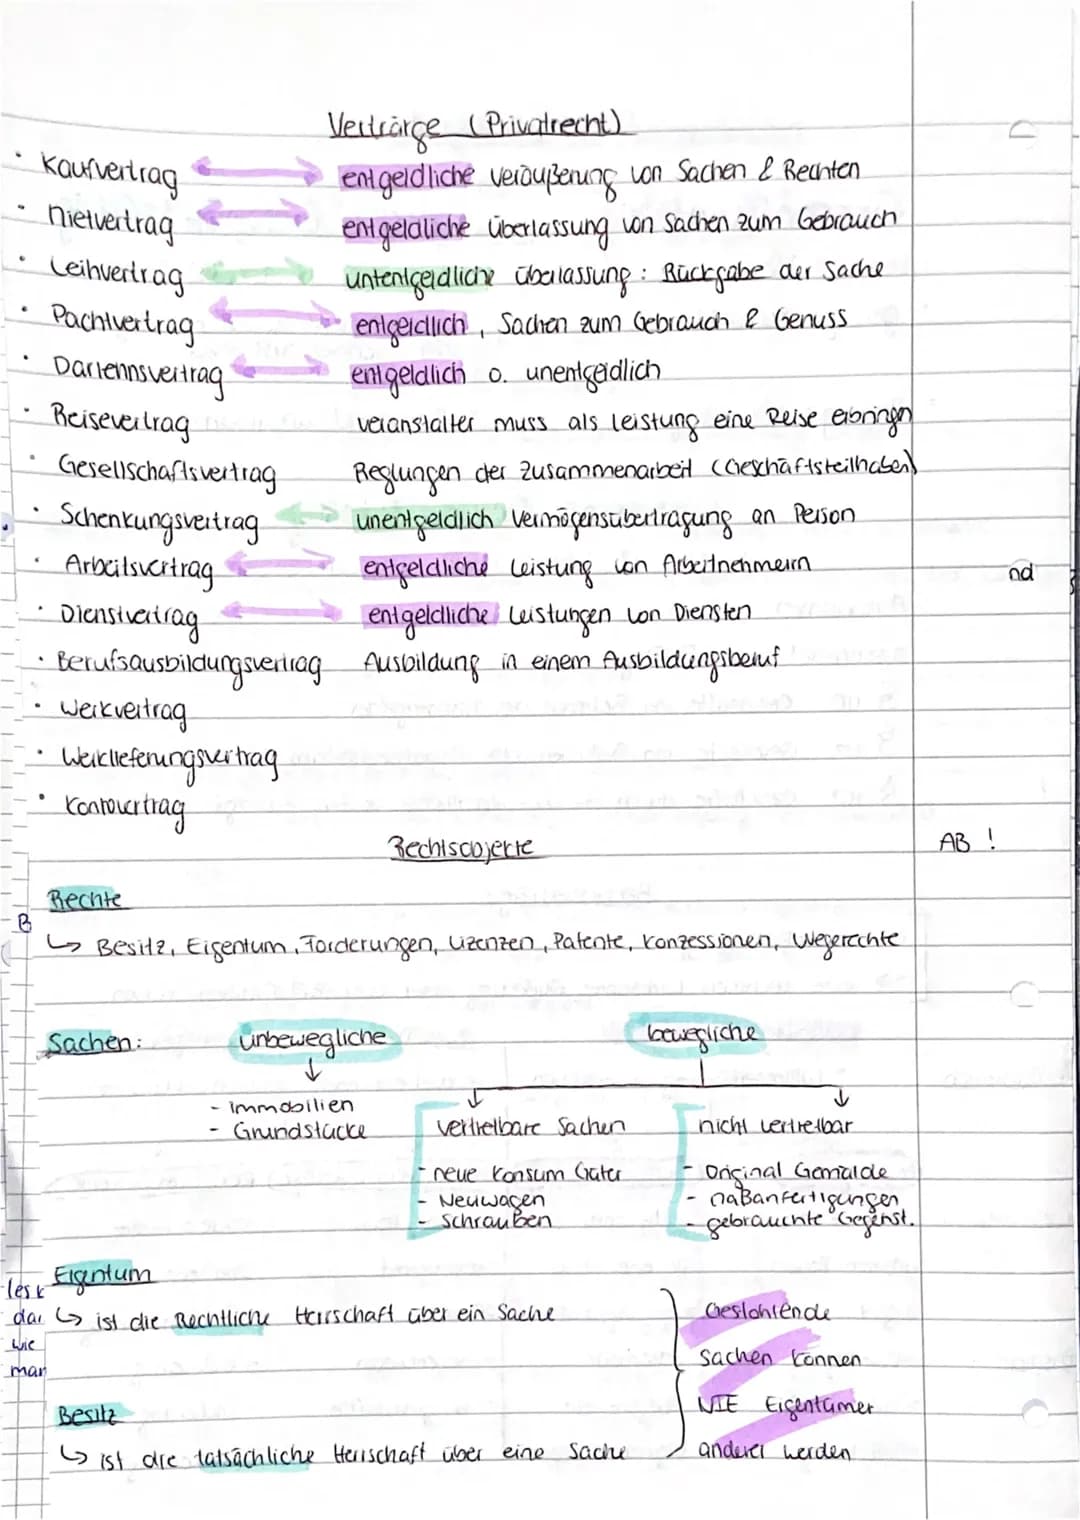 Verträge (Privatrecht)
· Kaufvertrag entgeldliche veräußerung von Sachen & Rechten
· Mietvertrag entgeldliche überlassung von Sachen zum Gebrauch
· Leihvertrag untentgeldliche überlassung : Rückgabe der Sache
· Pachtvertrag entgeldlich , Sachen zum Gebrauch & Genuss
· Darlehnsvertrag entgeldlich o. unentgeldlich
· Reisevertrag veranstalter muss als Leistung eine Reise erbringn
· Gesellschaftsvertrag Reglungen der Zusammenarbeit (Geschäftsteilhaber)
· Schenkungsvertrag unentgeldlich Vermögensübertragung an Person
· Arbeitsvertrag entgeldliche Leistung von Arbeitnehmern
nd
· Dienstvertrag entgeldliche Leistungen von Diensten
· Berufsausbildungsvertrag Ausbildung in einem Ausbildungsberuf
· Werkvertrag
· Werklieferungsvertrag
· Kontovertrag
Rechtsobjekte AB !
Rechte
B
↳ Besitz, Eigentum, Forderungen, Lizenzen, Patente, Konzessionen, Wegerechte
Sachen: unbewegliche bewegliche
- immobilien
- Grundstücke
vertretbare Sachen nicht vertretbar
- neue Konsum Güter - Original Gemälde
- Neuwagen - Maßanfertigungen
- Schrauben - gebrauchte Gegenst.
Eigentum
les k
dar
↳ ist die Rechtliche Herrschaft über ein Sache
Geslohlende
wie
Sachen können
man
Besitz
NIE Eigentümer
↳ ist die tatsächliche Herrschaft über eine Sache
anderer werden